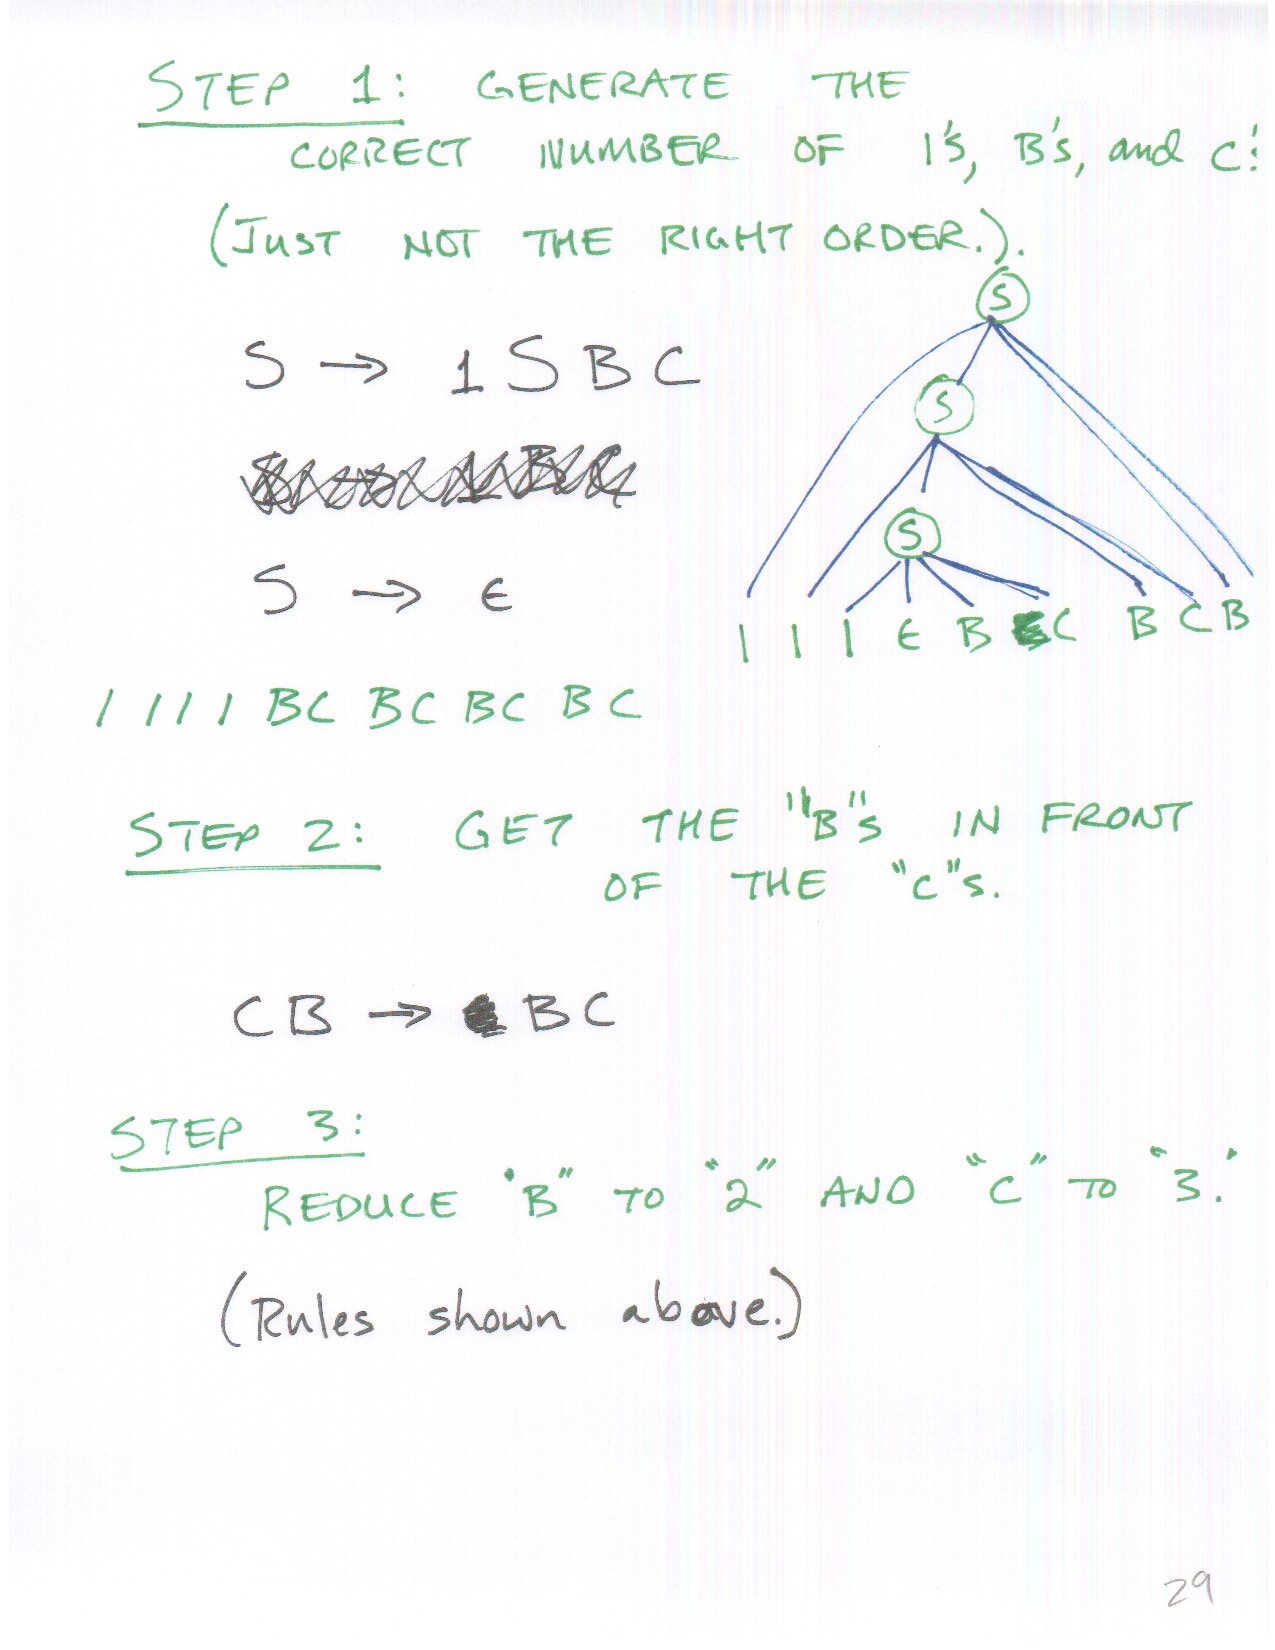 STEP 1: GENERATE THE
CORRECT NUMBER OF 1's, B's, and C'
(JUST NOT THE RIGHT ORDER.).
S
S → 1 S B C
S
S
S → ϵ
1 1 1 ϵ B C B C B
1 1 1 1 BC BC BC BC
STEP 2: GET THE "B"s IN FRONT
OF THE "C"s.
CB → BC
STEP 3:
REDUCE "B" TO "2" AND "C" TO "3."
(Rules shown above.)
29